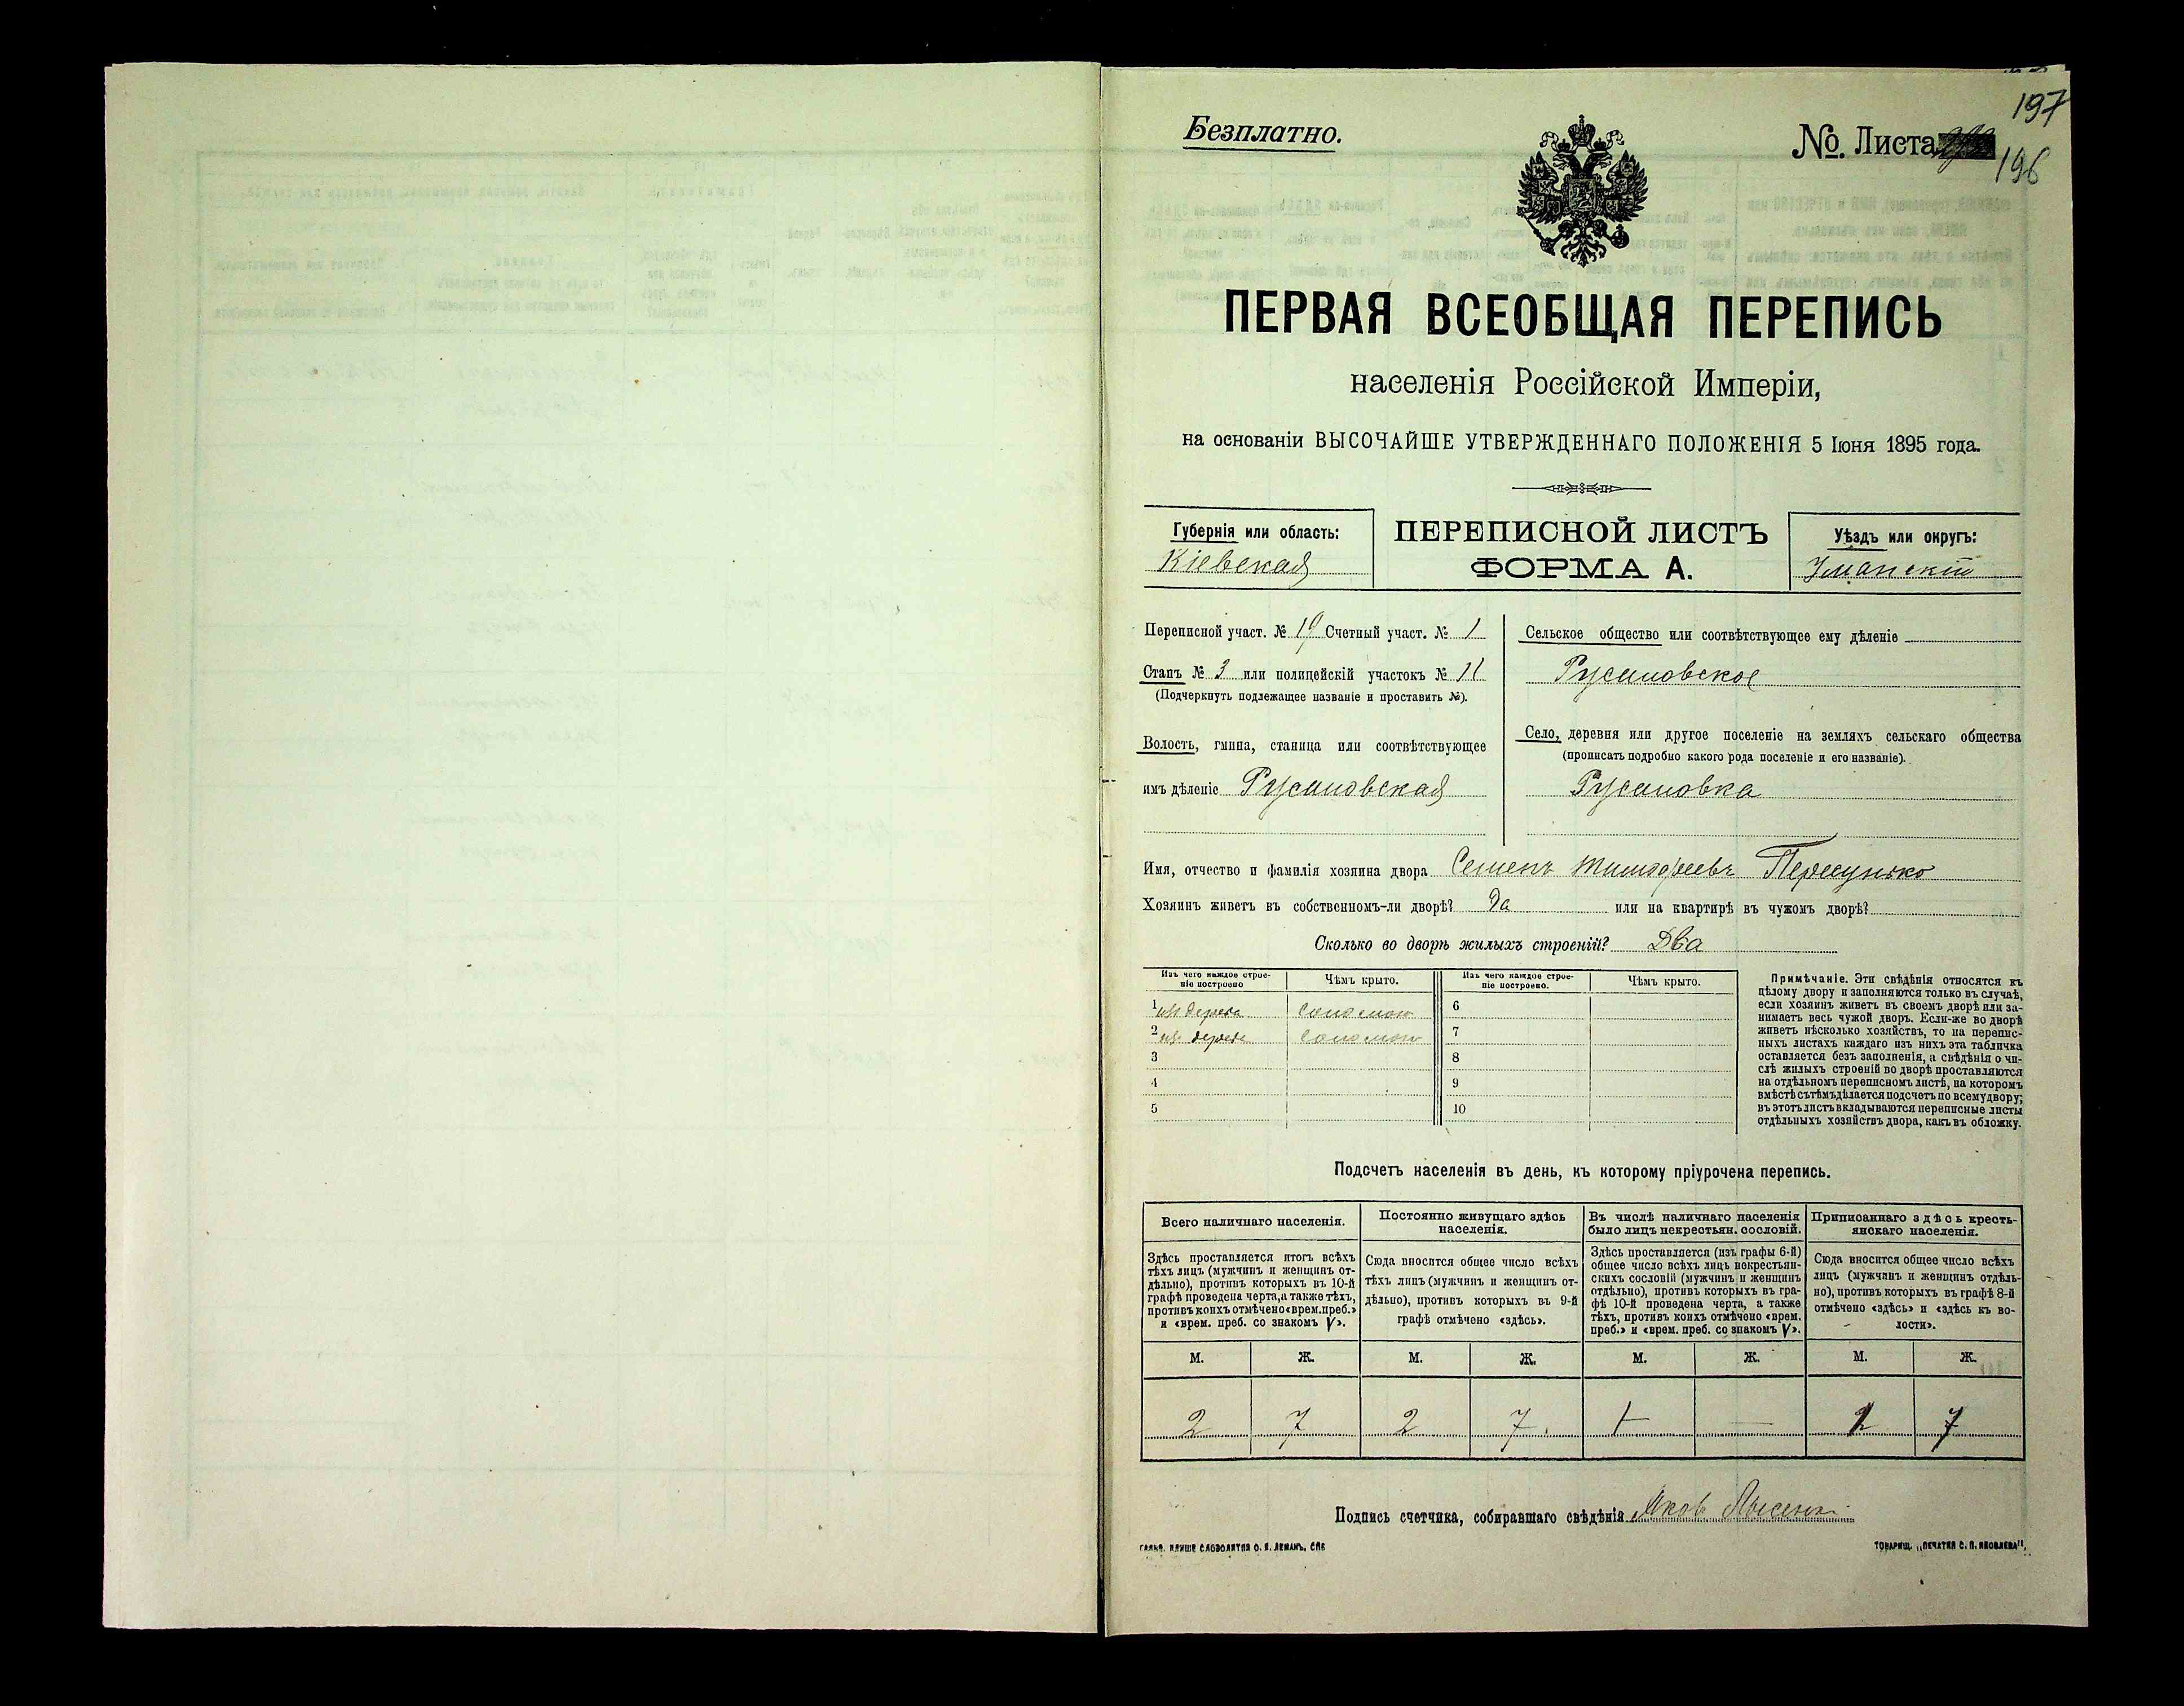 197
Безплатно.
№. Листа
196
ПЕРВАЯ ВСЕОБЩАЯ ПЕРЕПИСЬ
населенія Россійской Имперіи,
на основаніи ВЫСОЧАЙШЕ УТВЕРЖДЕННАГО ПОЛОЖЕНІЯ 5 Іюня 1895 года.
Губернія или область:
Кіевская
ПЕРЕПИСНОЙ ЛИСТЪ
ФОРМА А.
Уѣздъ или округъ:
Уманскій
Переписной участ. № 19 Счетный участ. № 1
Станъ № 3 или полицейскій участокъ № 11
(Подчеркнуть подлежащее названіе и проставить №).
Волость, гмина, станица или соотвѣтствующее
имъ дѣленіе Русаловская
Сельское общество или соотвѣтствующее ему дѣленіе
Русаловское
Село, деревня или другое поселеніе на земляхъ сельскаго общества
(прописать подробно какого рода поселеніе и его названіе).
Русаловка
Имя, отчество и фамилія хозяина двора Семенъ Тимофеевъ
Хозяинъ живетъ въ собственномъ-ли дворѣ? Да или на квартирѣ въ чужомъ дворѣ?
Сколько во дворѣ жилыхъ строеній? Два
Изъ чего каждое строе-
ніе построено
Чѣмъ крыто.
Изъ чего каждое строе-
ніе построено.
Чѣмъ крыто.
1 изъ дерева соломою 6
2 изъ дерева соломою 7
3 8
4 9
5 10
Примѣчаніе. Эти свѣдѣнія относятся къ
цѣлому двору и заполняются только въ случаѣ,
если хозяинъ живетъ въ своемъ дворѣ или за-
нимаетъ весь чужой дворъ. Если-же во дворѣ
живетъ нѣсколько хозяйствъ, то на перепис-
ныхъ листахъ каждаго изъ нихъ эта табличка
оставляется безъ заполненія, а свѣдѣнія о чи-
слѣ жилыхъ строеній во дворѣ проставляются
на отдѣльномъ переписномъ листѣ, на которомъ
вмѣстѣ съ тѣмъ дѣлается подсчетъ по всему двору;
въ этотъ листъ вкладываются переписные листы
отдѣльныхъ хозяйствъ двора, какъ въ обложку.
Подсчетъ населенія въ день, къ которому пріурочена перепись.
Всего наличнаго населенія.
Здѣсь проставляется итогъ всѣхъ
тѣхъ лицъ (мужчинъ и женщинъ от-
дѣльно), противъ которыхъ въ 10-й
графѣ проведена черта, а также тѣхъ,
противъ коихъ отмѣчено «врем. преб.»
и «врем. преб. со знакомъ V».
Постоянно живущаго здѣсь
населенія.
Сюда вносится общее число всѣхъ
тѣхъ лицъ (мужчинъ и женщинъ от-
дѣльно), противъ которыхъ въ 9-й
графѣ отмѣчено «здѣсь».
Въ числѣ наличнаго населенія
было лицъ некрестьян. сословій.
Здѣсь проставляется (изъ графы 6-й)
общее число всѣхъ лицъ некрестьян-
скихъ сословій (мужчинъ и женщинъ
отдѣльно), противъ которыхъ въ гра-
фѣ 10-й проведена черта, а также
тѣхъ, противъ коихъ отмѣчено «врем.
преб.» и «врем. преб. со знакомъ V».
Приписаннаго здѣсь кресть-
янскаго населенія.
Сюда вносится общее число всѣхъ
лицъ (мужчинъ и женщинъ отдѣль-
но), противъ которыхъ въ графѣ 8-й
отмѣчено «здѣсь» и «здѣсь къ во-
лости».
М. Ж. М. Ж. М. Ж. М. Ж.
2 7 2 7. — 7
Подпись счетчика, собиравшаго свѣдѣнія Яковъ
ГАЛЬВ. КЛИШЕ СЛОВОЛИТНИ О. И. ЛЕМАНЪ, СПБ
ТОВАРИЩ. „ПЕЧАТНЯ С. П. ЯКОВЛЕВА".